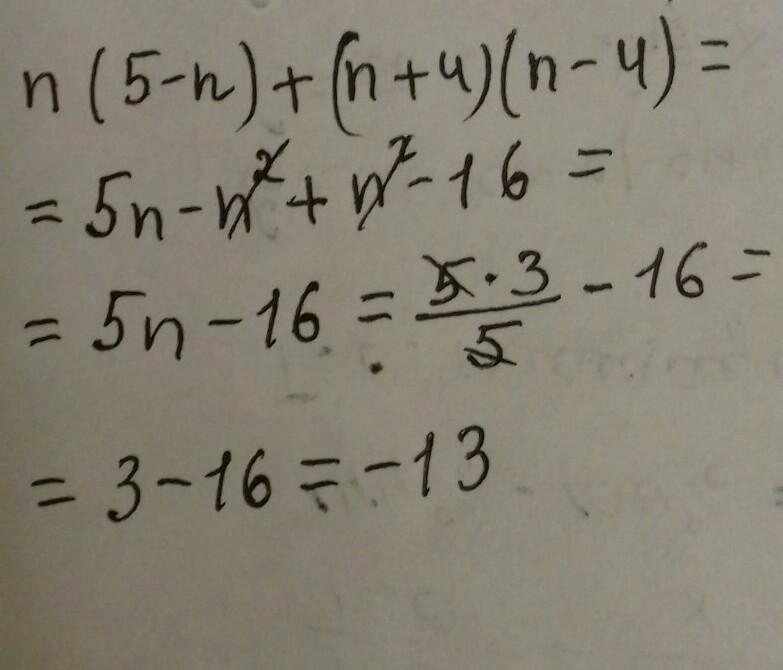 n(5-n)+(n+4)(n-4)=
=5n-n²+n²-16=
=5n-16=5·3/5-16=
=3-16=-13